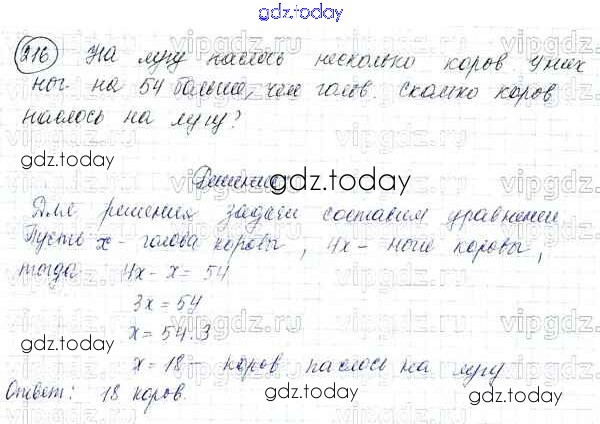 gdz.today
216 На лугу паслось несколько коров У них
ног на 54 больше, чем голов. Сколько коров
паслось на лугу?
gdz.today
gdz.today
Решение
gdz.today
Для решения задачи составим уравнение.
Пусть x - голова коровы, 4x - ноги коровы,
тогда 4x - x = 54
3x = 54
x = 54:3
gdz.today
gdz.today
x = 18 - коров паслось на лугу
Ответ: 18 коров.
gdz.today
gdz.today
vipgdz.ru